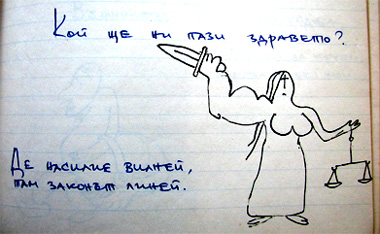 Кой ще ни пази здравето?
Де насилие вилней,
там законът линей.